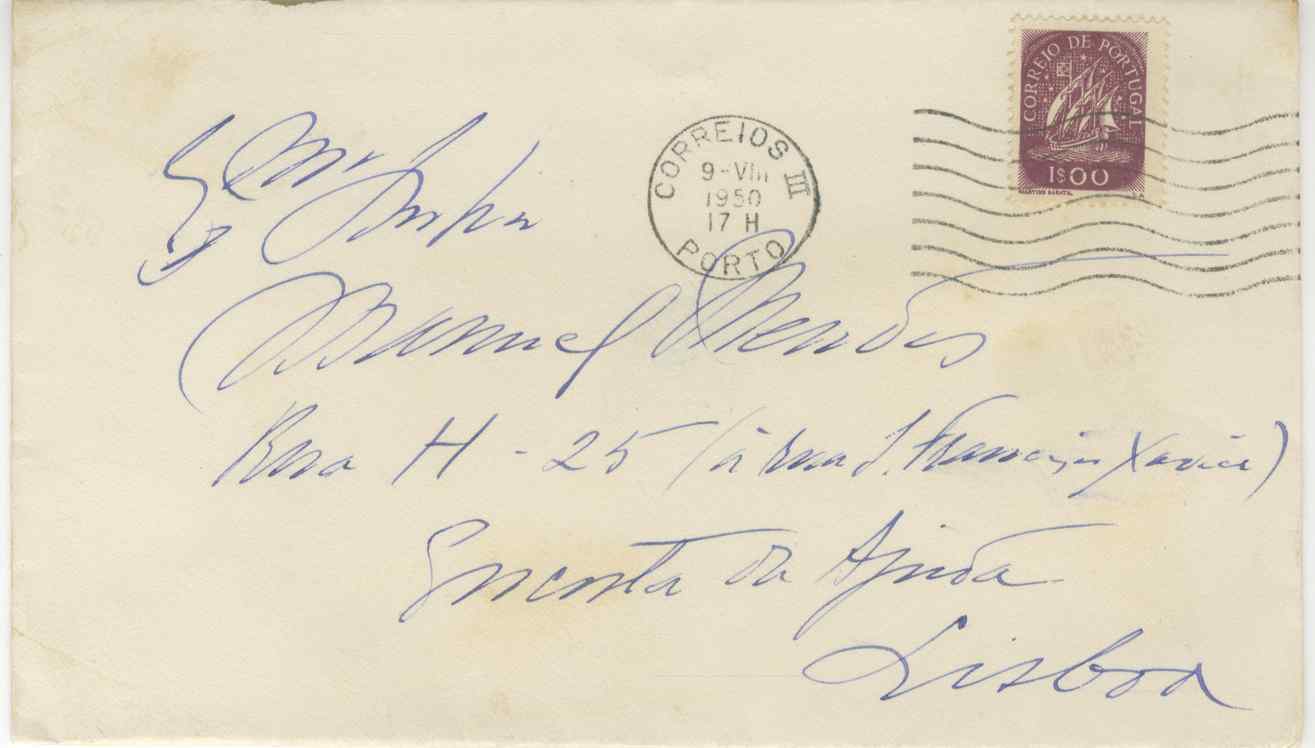 CORREIO DE PORTUGAL
1$00
CORREIOS III
9-VIII
1950
17 H
PORTO
Manuel Mendes
Rua H - 25 (à rua S. Francisco Xavier)
Encosta da Ajuda
Lisboa